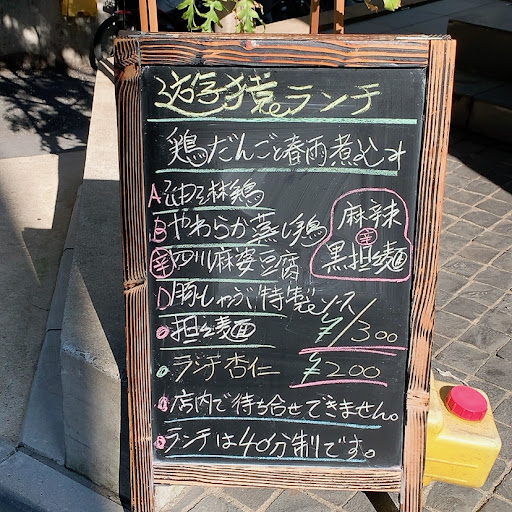 遊猿ランチ
鶏だんごと春雨煮込み
A油淋鶏
Bやわらか蒸し鶏
辛四川麻婆豆腐
D豚しゃぶ特製ソース
担々麺
麻辣
辛
黒担麺
¥1300
ランチ杏仁
¥200
店内で待ち合せできません。
ランチは40分制です。